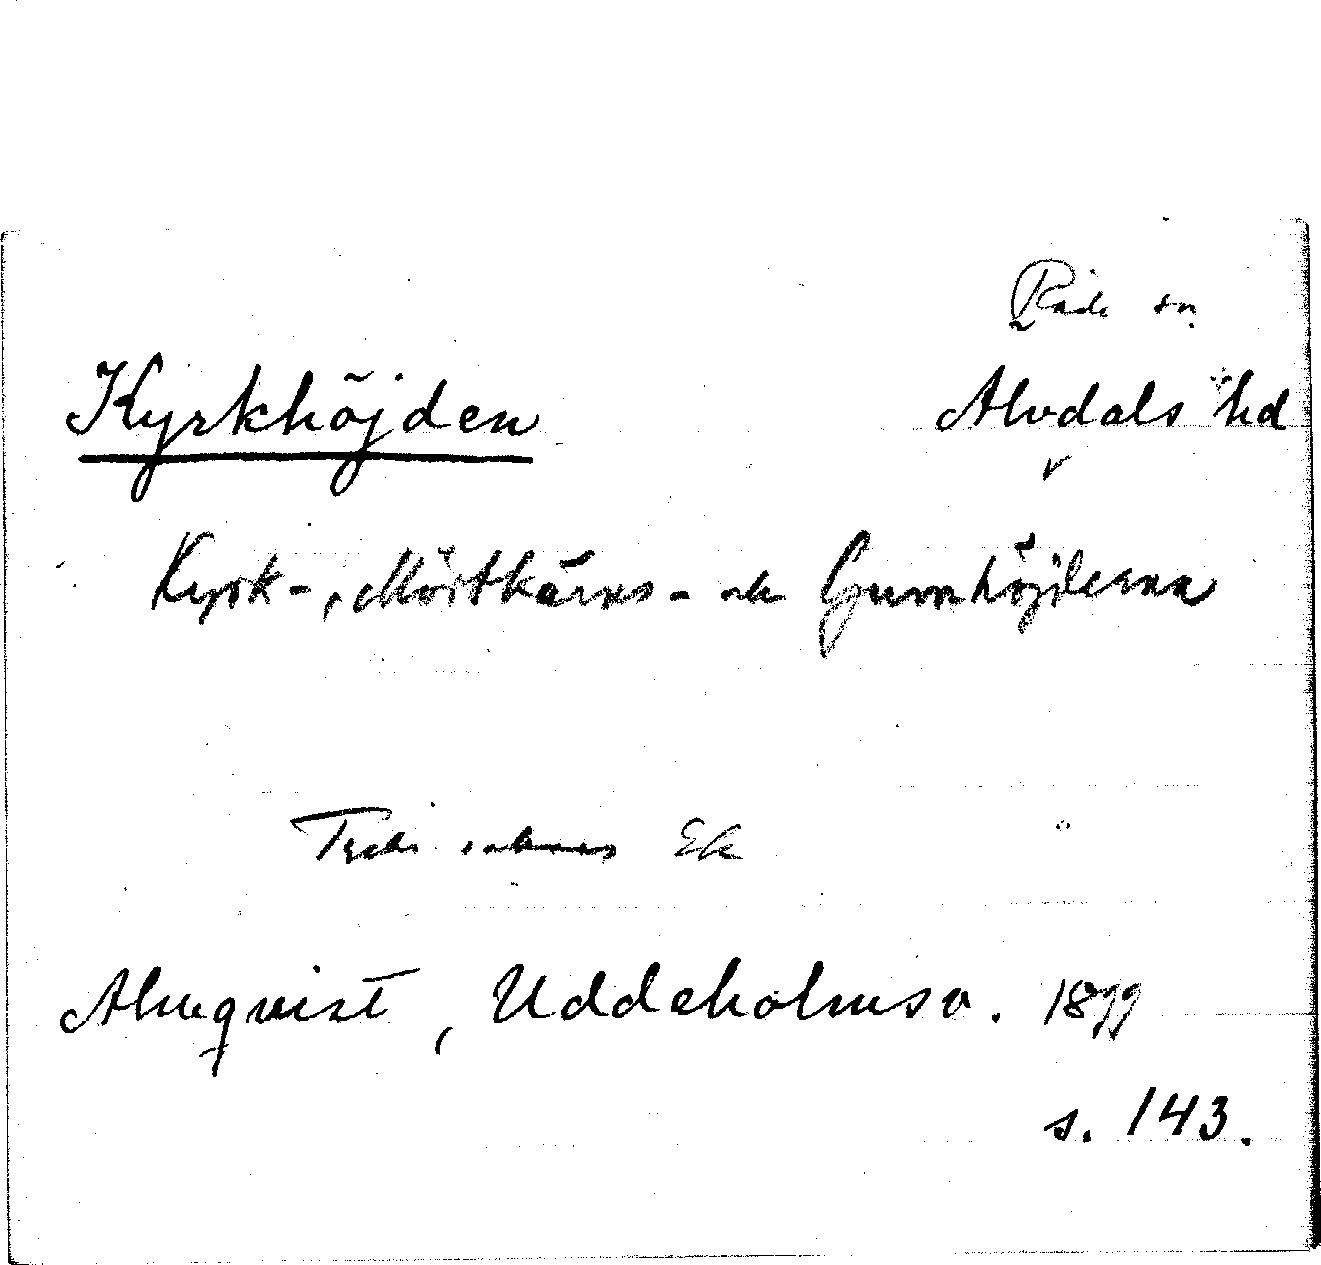 Råda sn
Kyrkhöjden Älvdals hd
Kyrk-, Mörtkärns- och Gumhöjderna
saknas Ek
Almqvist, Uddeholmsv. 1899
s. 143.